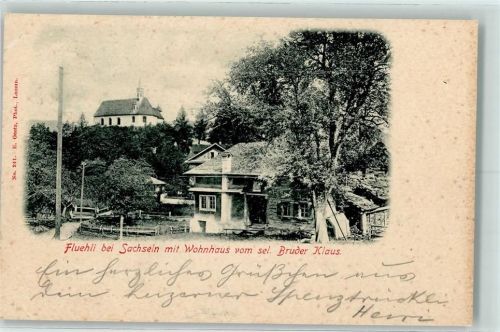 No. 211. E. Goetz, Phot., Luzern.
Fluehli bei Sachseln mit Wohnhaus vom sel. Bruder Klaus.
Ein herzliches Grüßchen aus
dem Luzerner
Heiri